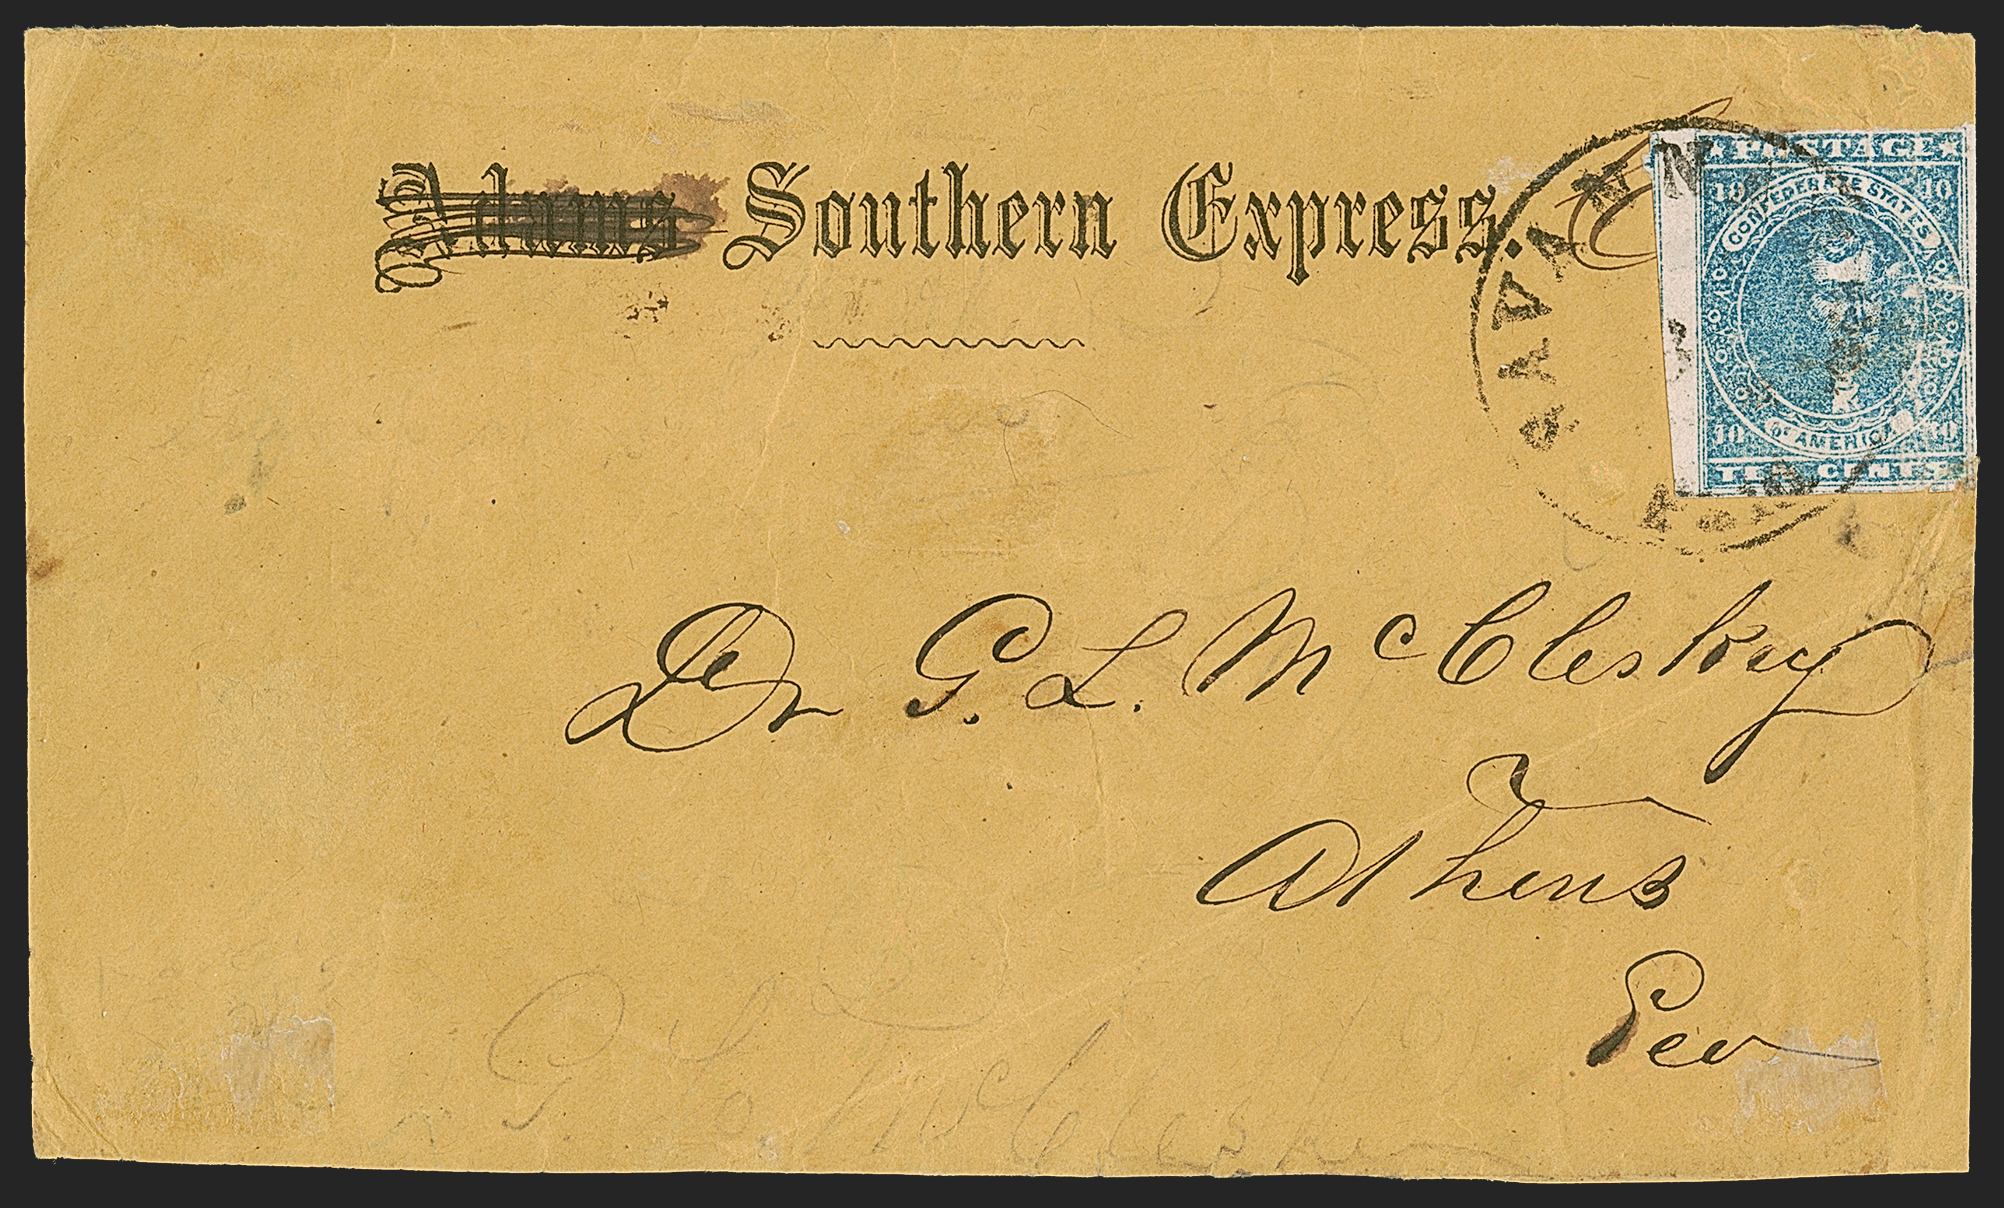 Adams Southern Express.
SAVANN
POSTAGE
10 10
CONFEDERATE STATES
OF AMERICA
10 10
TEN CENTS
Dr G. L. McCleskey
Athens
Geo
G. L. McCleskey